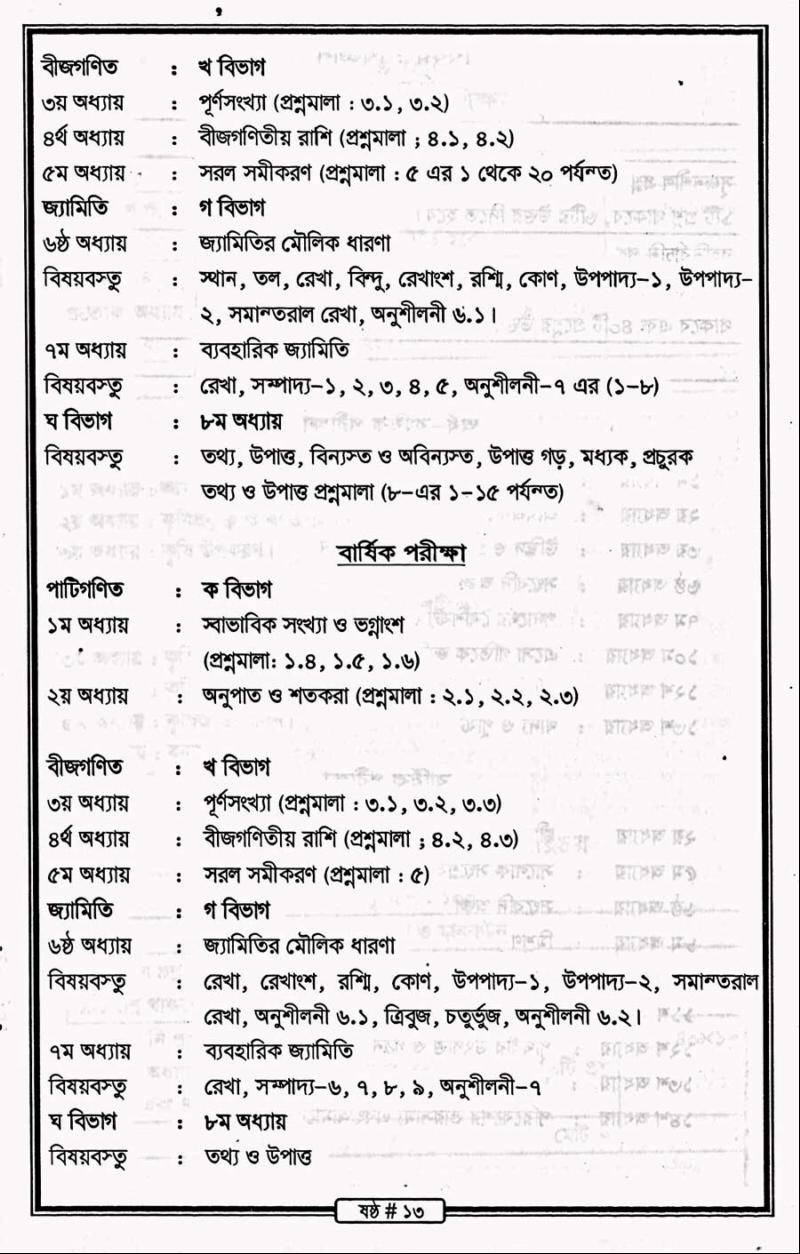 বীজগণিত : খ বিভাগ
৩য় অধ্যায় : পূর্ণসংখ্যা (প্রশ্নমালা : ৩.১, ৩.২)
৪র্থ অধ্যায় : বীজগণিতীয় রাশি (প্রশ্নমালা ; ৪.১, ৪.২)
৫ম অধ্যায় : সরল সমীকরণ (প্রশ্নমালা : ৫ এর ১ থেকে ২০ পর্যন্ত)
জ্যামিতি : গ বিভাগ
৬ষ্ঠ অধ্যায় : জ্যামিতির মৌলিক ধারণা
বিষয়বস্তু : স্থান, তল, রেখা, বিন্দু, রেখাংশ, রশ্মি, কোণ, উপপাদ্য-১, উপপাদ্য-
২, সমান্তরাল রেখা, অনুশীলনী ৬.১।
৭ম অধ্যায় : ব্যবহারিক জ্যামিতি
বিষয়বস্তু : রেখা, সম্পাদ্য-১, ২, ৩, ৪, ৫, অনুশীলনী-৭ এর (১-৮)
ঘ বিভাগ : ৮ম অধ্যায়
বিষয়বস্তু : তথ্য, উপাত্ত, বিন্যস্ত ও অবিন্যস্ত, উপাত্ত গড়, মধ্যক, প্রচুরক
তথ্য ও উপাত্ত প্রশ্নমালা (৮-এর ১-১৫ পর্যন্ত)
বার্ষিক পরীক্ষা
পাটিগণিত : ক বিভাগ
১ম অধ্যায় : স্বাভাবিক সংখ্যা ও ভগ্নাংশ
(প্রশ্নমালা: ১.৪, ১.৫, ১.৬)
২য় অধ্যায় : অনুপাত ও শতকরা (প্রশ্নমালা : ২.১, ২.২, ২.৩)
বীজগণিত : খ বিভাগ
৩য় অধ্যায় : পূর্ণসংখ্যা (প্রশ্নমালা : ৩.১, ৩.২, ৩.৩)
৪র্থ অধ্যায় : বীজগণিতীয় রাশি (প্রশ্নমালা ; ৪.২, ৪.৩)
৫ম অধ্যায় : সরল সমীকরণ (প্রশ্নমালা : ৫)
জ্যামিতি : গ বিভাগ
৬ষ্ঠ অধ্যায় : জ্যামিতির মৌলিক ধারণা
বিষয়বস্তু : রেখা, রেখাংশ, রশ্মি, কোণ, উপপাদ্য-১, উপপাদ্য-২, সমান্তরাল
রেখা, অনুশীলনী ৬.১, ত্রিবুজ, চতুর্ভুজ, অনুশীলনী ৬.২।
৭ম অধ্যায় : ব্যবহারিক জ্যামিতি
বিষয়বস্তু : রেখা, সম্পাদ্য-৬, ৭, ৮, ৯, অনুশীলনী-৭
ঘ বিভাগ : ৮ম অধ্যায়
বিষয়বস্তু : তথ্য ও উপাত্ত
ষষ্ঠ # ১৩